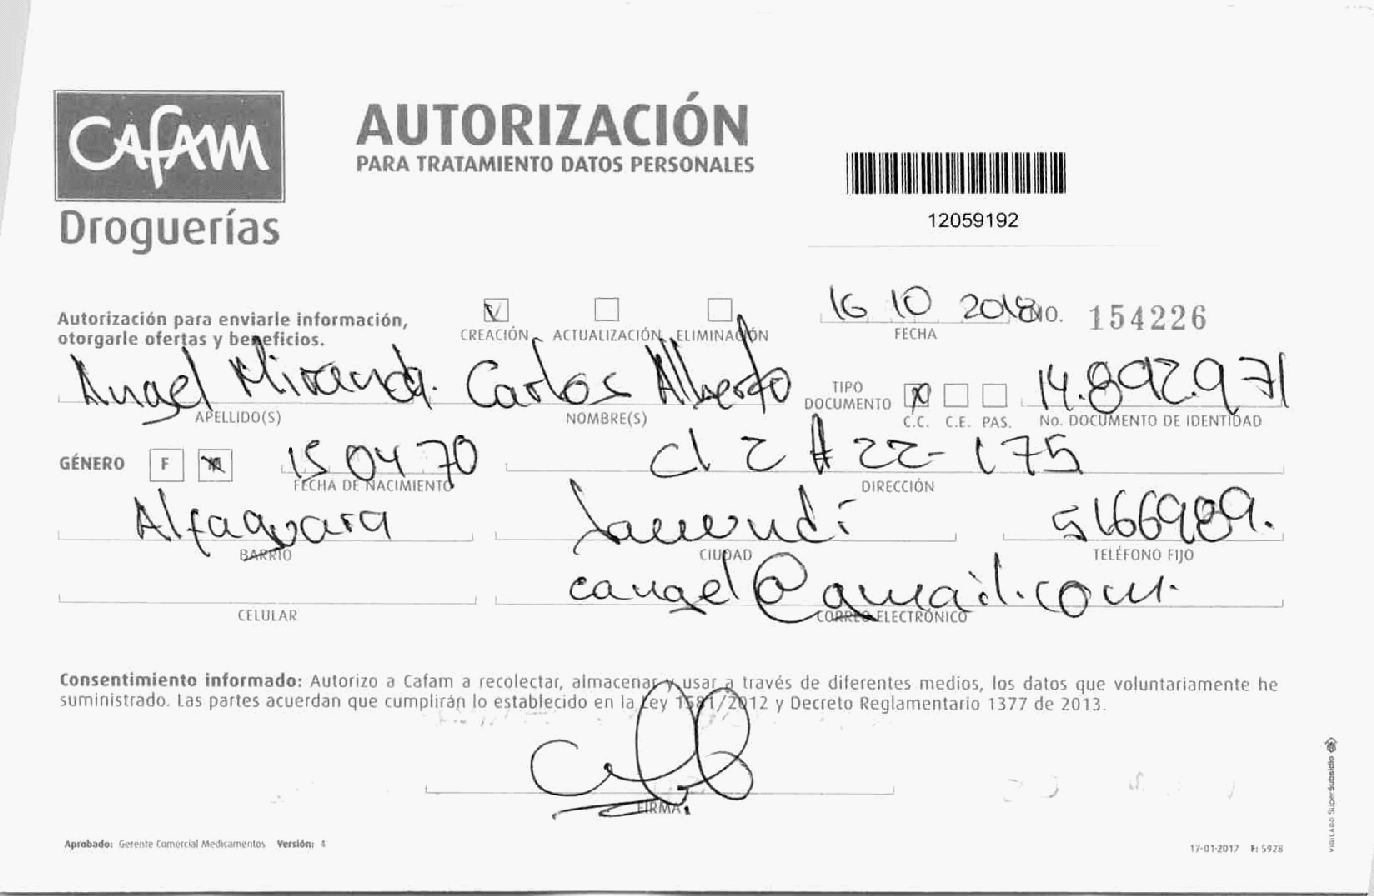 CAFAM
Droguerías
AUTORIZACIÓN
PARA TRATAMIENTO DATOS PERSONALES
12059192
Autorización para enviarle información,
otorgarle ofertas y beneficios.
CREACIÓN ACTUALIZACIÓN ELIMINACIÓN
16 10 2018 No. 154226
FECHA
Angel Miranda. Carlos Alberto
TIPO
DOCUMENTO
14.892.971
APELLIDO(S) NOMBRE(S) C.C. C.E. PAS. No. DOCUMENTO DE IDENTIDAD
GÉNERO F 15 04 70 Cl 2 # 22-175
FECHA DE NACIMIENTO DIRECCIÓN
Alfaguara Jamundi 5166989.
BARRIO CIUDAD TELÉFONO FIJO
cangel@gmail.com.
CELULAR CORREO ELECTRÓNICO
Consentimiento informado: Autorizo a Cafam a recolectar, almacenar y usar a través de diferentes medios, los datos que voluntariamente he
suministrado. Las partes acuerdan que cumplirán lo establecido en la Ley 1581/2012 y Decreto Reglamentario 1377 de 2013.
FIRMA
Aprobado: Gerente Comercial Medicamentos Versión: 4
17-01-2017 F: 5928
VIGILADO SuperSubsidio